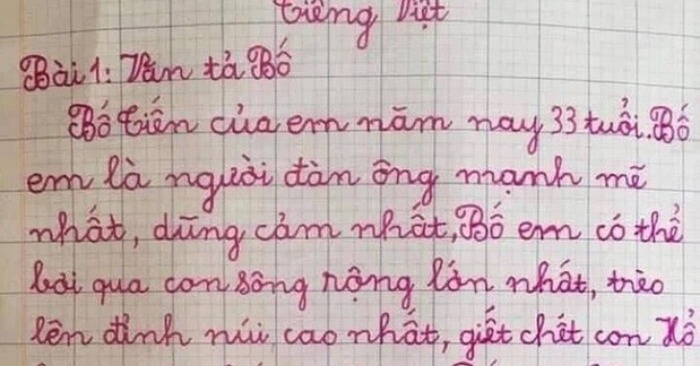 Tiếng Việt
Bài 1: Văn tả Bố
Bố Tiến của em năm nay 33 tuổi. Bố
em là người đàn ông mạnh mẽ
nhất, dũng cảm nhất, Bố em có thể
bơi qua con sông rộng lớn nhất, trèo
lên đỉnh núi cao nhất, giết chết con Hổ